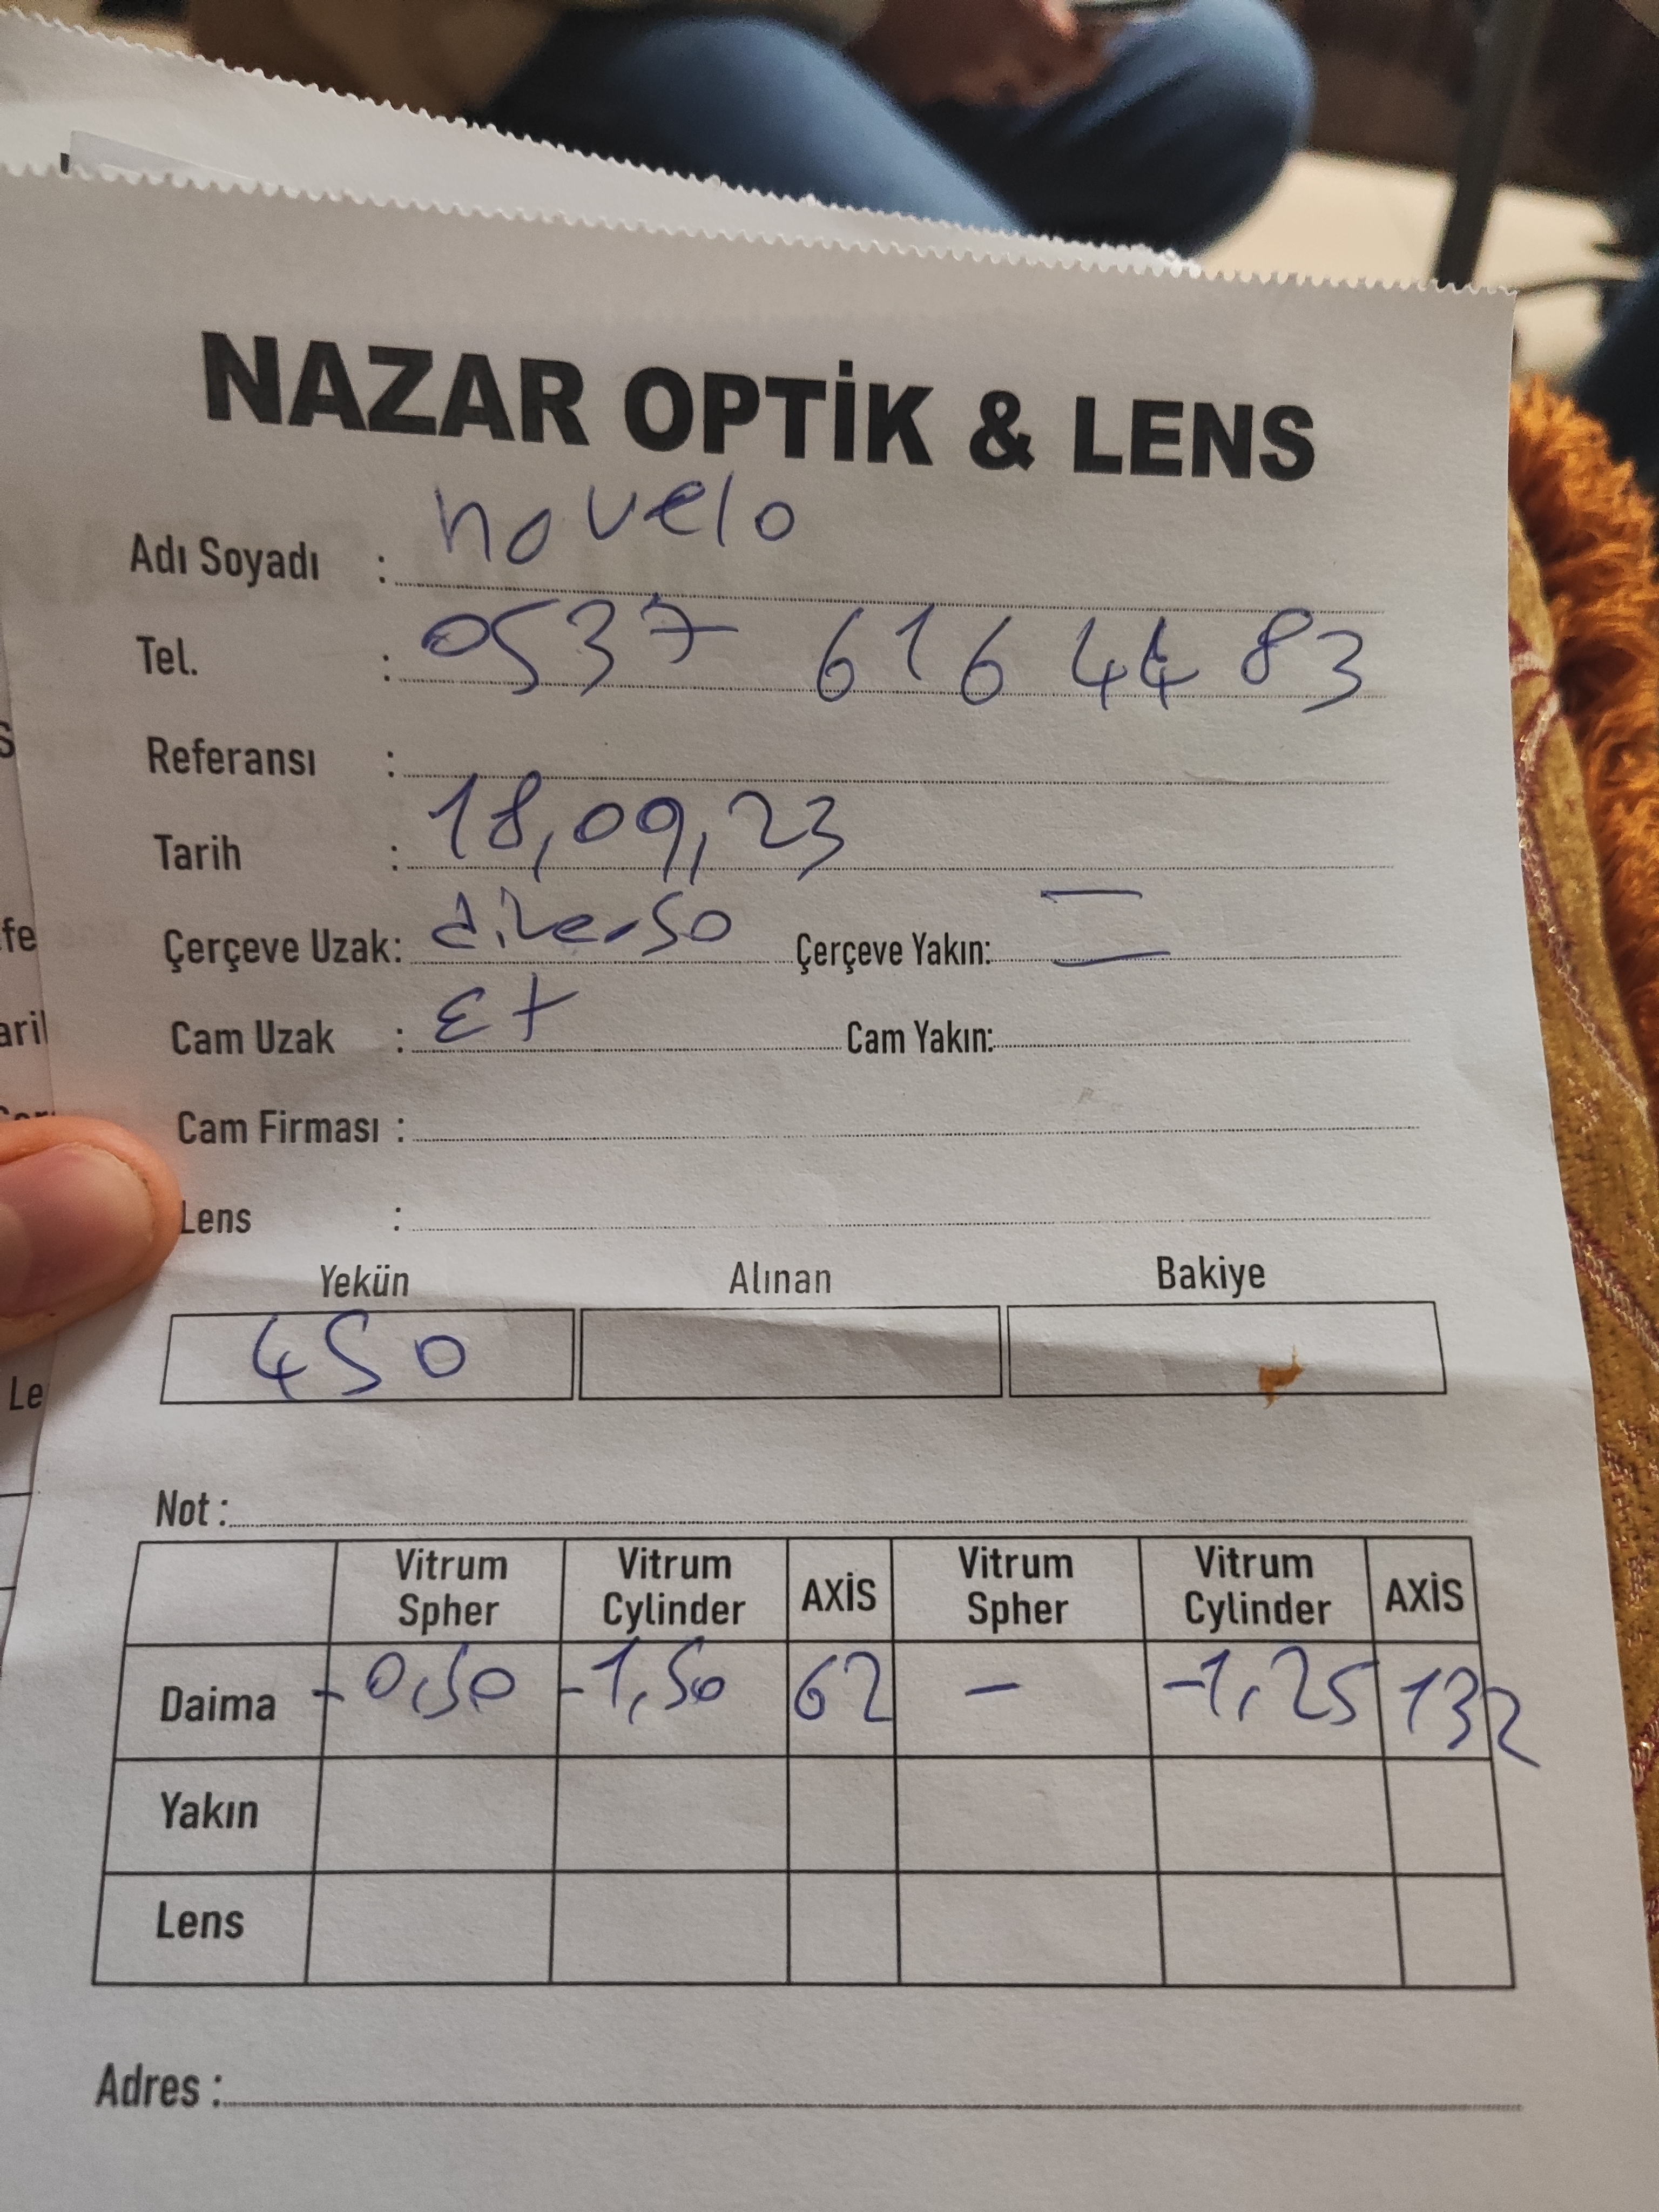 NAZAR OPTİK & LENS
Adı Soyadı : novelo
Tel. : 0537 616 44 83
Referansı :
Tarih : 18,09,23
Çerçeve Uzak: diverso Çerçeve Yakın: —
Cam Uzak : Et Cam Yakın:
Cam Firması :
Lens :
Yekün Alınan Bakiye
450
Not :
Vitrum Spher Vitrum Cylinder AXİS Vitrum Spher Vitrum Cylinder AXİS
Daima -0,50 -1,50 62 - -1,25 132
Yakın
Lens
Adres :